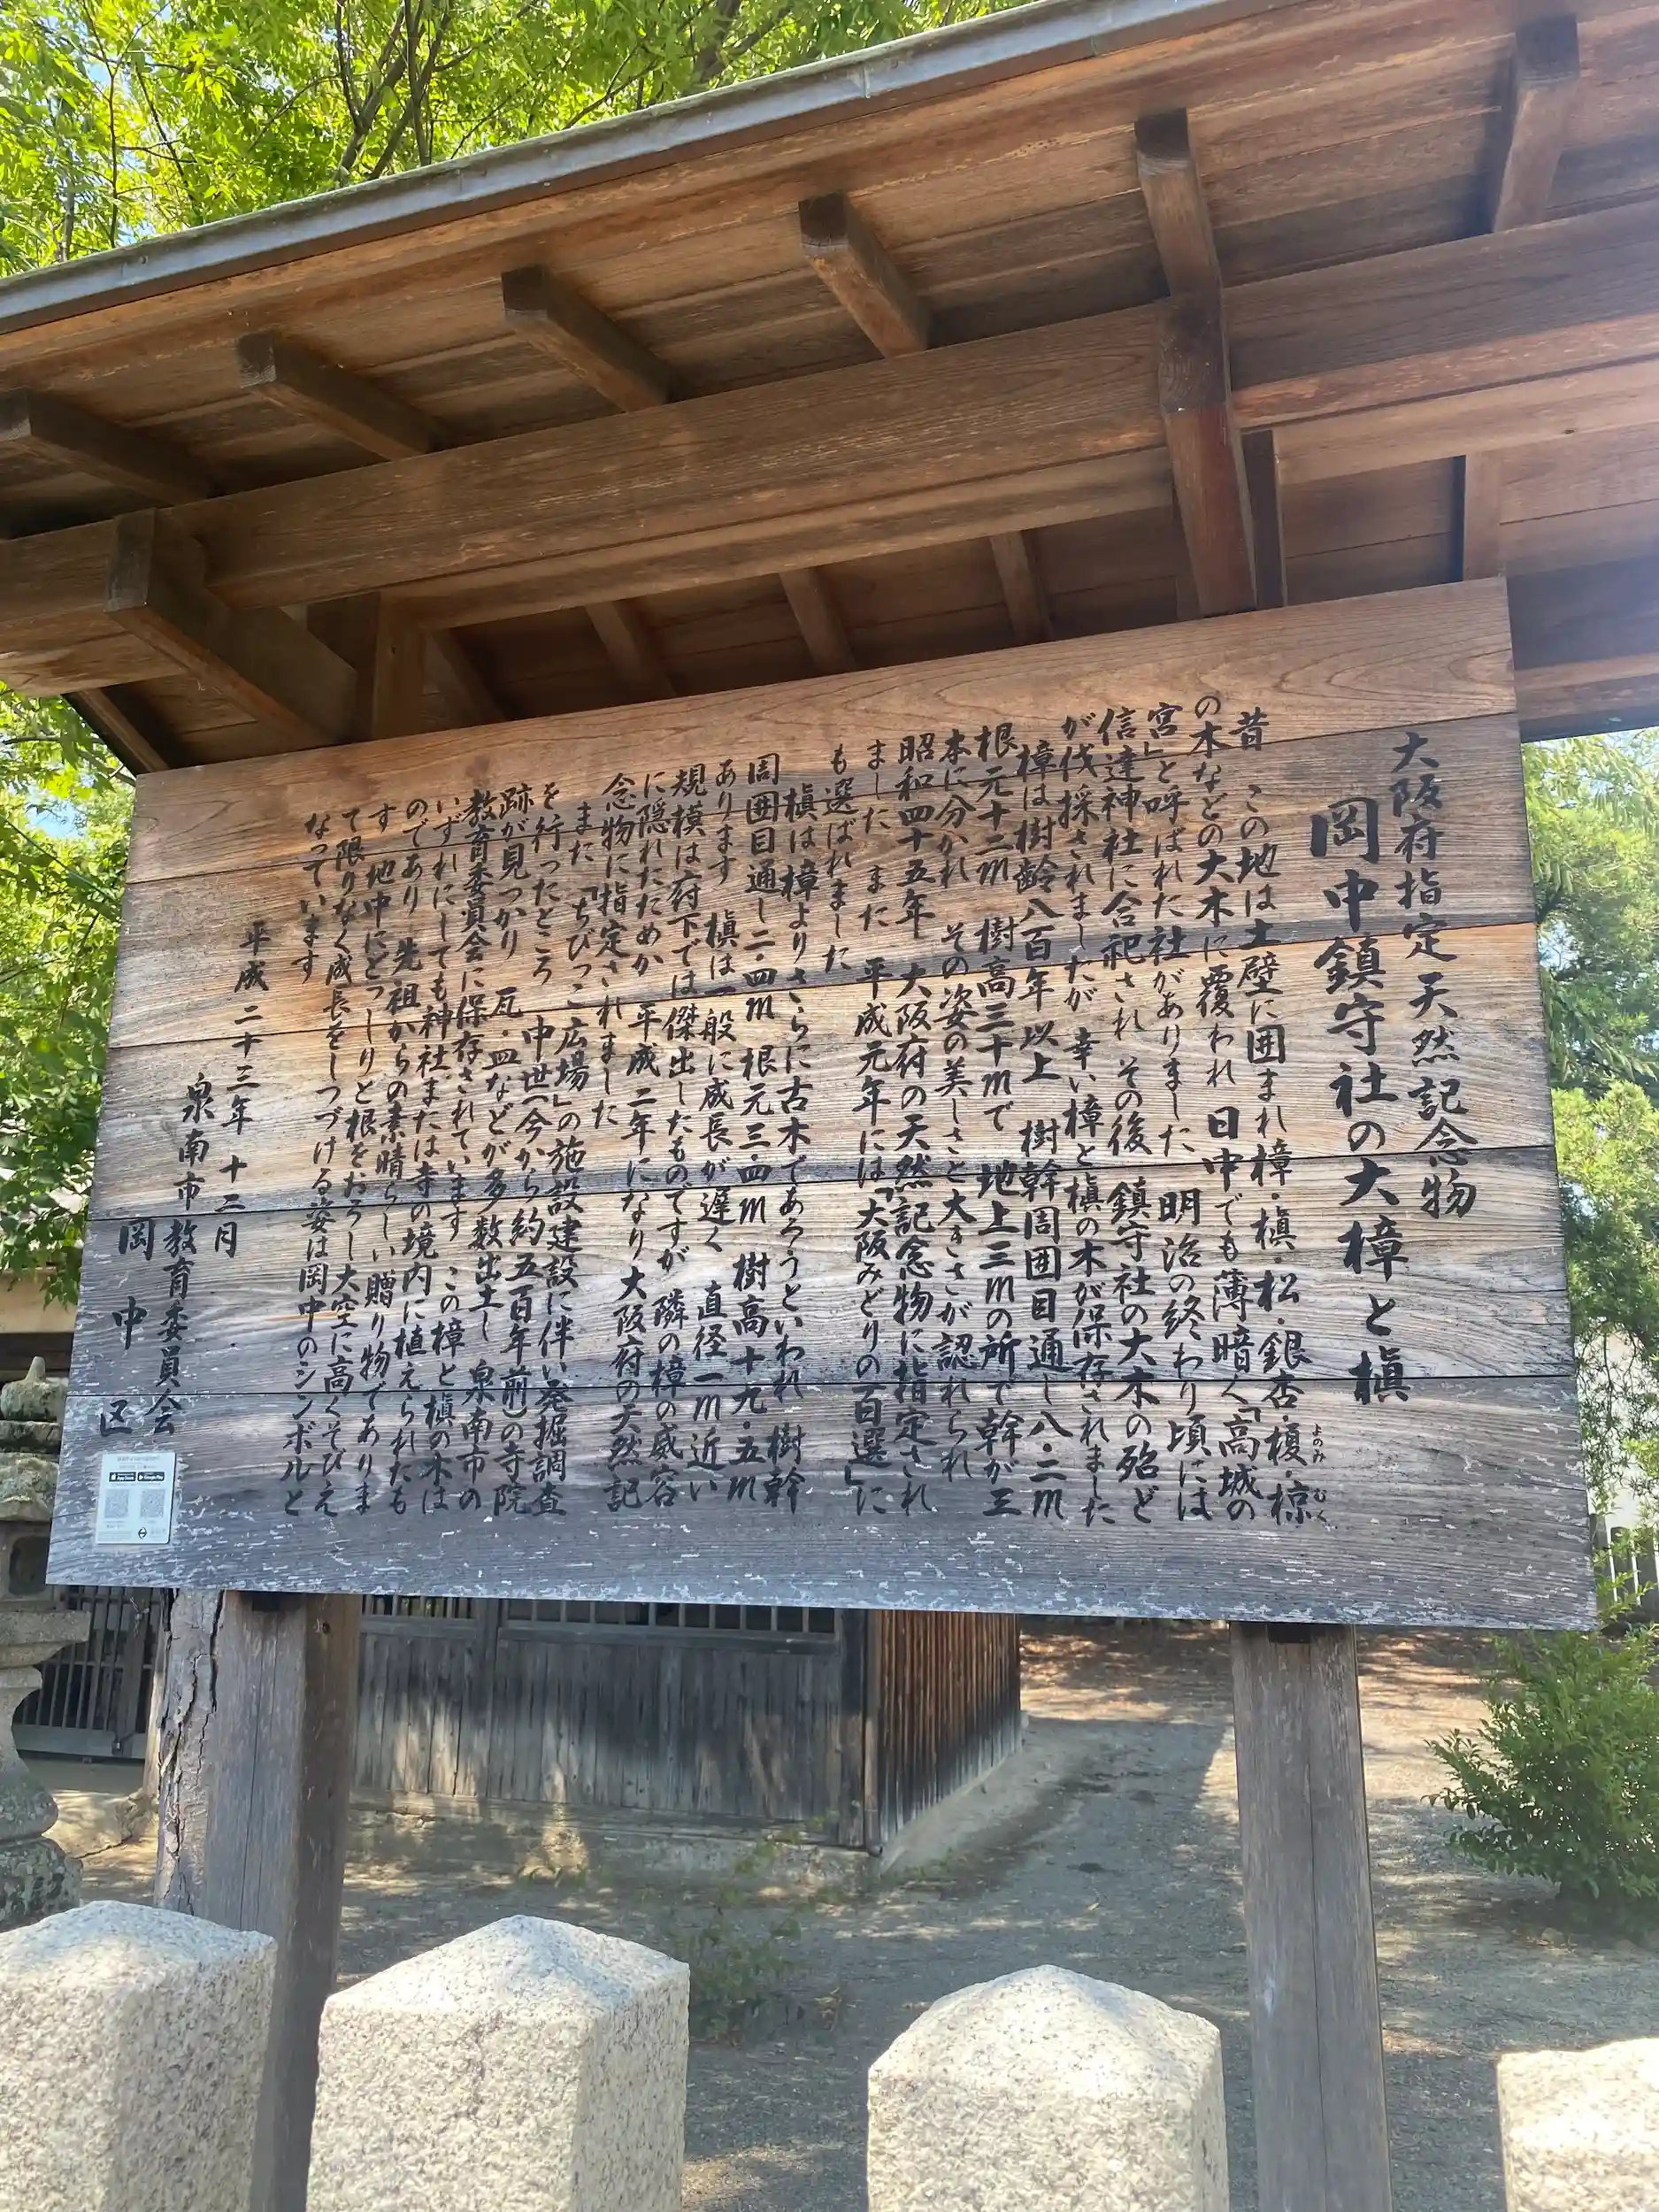 大阪府指定天然記念物
岡中鎮守社の大樟と槇
昔 この地は土壁に囲まれ樟・槇・松・銀杏・榎・椋
よのみ
むく
の木などの大木に覆われ 日中でも薄暗く「高城の
宮」と呼ばれた社がありました 明治の終わり頃には
信達神社に合祀され その後 鎮守社の大木の殆ど
が伐採されましたが 幸い樟と槇の木が保存されました
樟は樹齢八百年以上 樹幹周囲目通し八・二m
根元十二m 樹高三十mで 地上三mの所で幹が三
本に分かれ その姿の美しさと大きさが認められ
昭和四十五年 大阪府の天然記念物に指定され
ました また 平成元年には「大阪みどりの百選」に
も選ばれました
槇は樟よりさらに古木であろうといわれ 樹幹
周囲目通し二・四m 根元三・四m 樹高十九・五m
あります 槇は一般に成長が遅く 直径一m近い
規模は府下では傑出したものですが 隣の樟の威容
に隠れたためか 平成二年になり大阪府の天然記
念物に指定されました
また「ちびっこ広場」の施設建設に伴い発掘調査
を行ったところ 中世(今から約五百年前)の寺院
跡が見つかり 瓦・皿などが多数出土し 泉南市の
教育委員会に保存されています この樟と槇の木は
いずれにしても神社または寺の境内に植えられたも
のであり 先祖からの素晴らしい贈り物でありま
す 地中にどっしりと根をおろし大空に高くそびえ
て限りなく成長をしつづける姿は岡中のシンボルと
なっています
平成二十三年十二月
泉南市教育委員会
岡中区